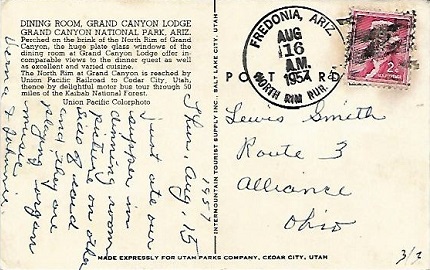 DINING ROOM, GRAND CANYON LODGE
GRAND CANYON NATIONAL PARK, ARIZ.
Perched on the brink of the North Rim of Grand
Canyon, the huge plate glass windows of the
dining room at Grand Canyon Lodge offer in-
comparable views to the dinner guest as well
as excellent and varied cuisine.
The North Rim at Grand Canyon is reached by
Union Pacific Railroad to Cedar City, Utah,
thence by delightful motor bus tour through 50
miles of the Kaibab National Forest.
Union Pacific Colorphoto
Thur, Aug. 15
1957
just ate our
supper in
dinning room
picture on other
side of card
and they are
playing organ
music.
Verna & Johnnie.
INTERMOUNTAIN TOURIST SUPPLY INC., SALT LAKE CITY, UTAH
FREDONIA, ARIZ.
AUG
16
A.M.
1957
NORTH RIM RUR.
POST CARD
2¢
Lewis Smith
Route 3
Alliance
Ohio
MADE EXPRESSLY FOR UTAH PARKS COMPANY, CEDAR CITY, UTAH